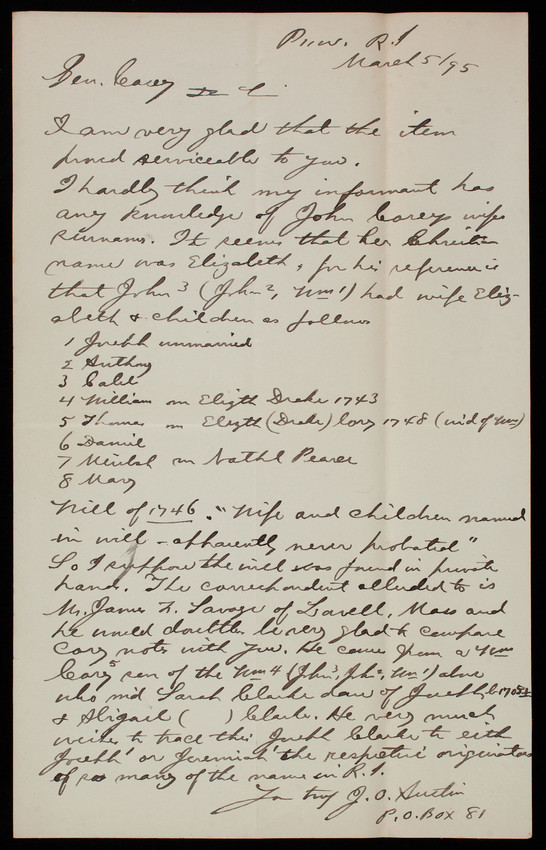 Prov. R.I
March 5/95
Gen. Casey
I am very glad that the item
proved serviceable to you.
I hardly think my informant has
any knowledge of John Corey's wife
surname. It seems that her Christian
name was Elizabeth, for his reference is
that John 3 (John 2, Wm 1) had wife Eliz-
abeth & children as follows
1 Joseph unmarried
2 Anthony
3 Caleb
4 William m Elizth Drake 1743
5 Thomas m Elizth (Drake) Cory 1748 (wid of Wm)
6 Daniel
7 m Nathl Pearce
8 Mary
Will of 1746. "Wife and children named
in will - apparently never probated"
So I suppose the will was found in private
hands. The correspondent alluded to is
Mr. James F. Savage of Lowell, Mass and
he would doubtless be very glad to compare
Cory notes with you. He came from a Wm
Cory 5 son of the Wm 4 (John 3, Jho 2, Wm 1) above
who md Sarah Clarke dau of Joseph
& Abigail ( ) Clarke. He very much
wishes to trace this Joseph Clarke to eith
Joseph 1 or Jeremiah 1 the respective originators
of so many of the name in R.I.
Yrs truly J.O. Austin
P.O. Box 81